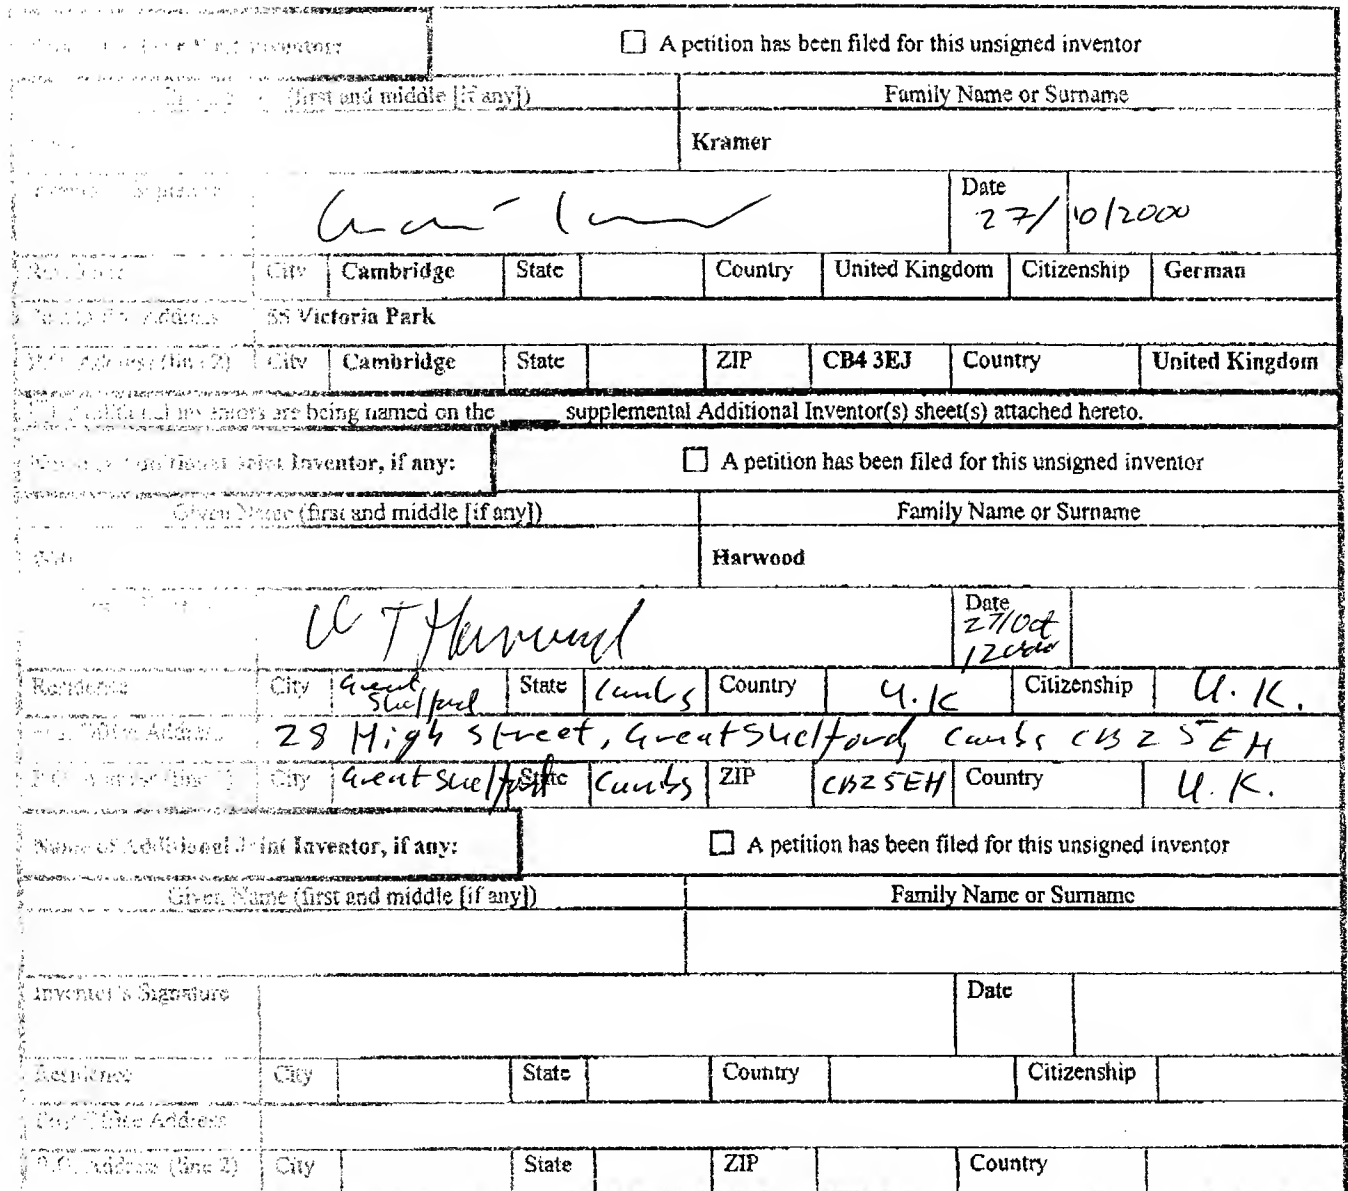 Inventor: A petition has been filed for this unsigned inventor
(first and middle [if any]) Family Name or Surname
Kramer
Signature Date 27/10/2000
Residence City Cambridge State Country United Kingdom Citizenship German
Post Office Address 55 Victoria Park
P.O. Address (line 2) City Cambridge State ZIP CB4 3EJ Country United Kingdom
inventors are being named on the supplemental Additional Inventor(s) sheet(s) attached hereto.
Name of Additional Joint Inventor, if any: A petition has been filed for this unsigned inventor
Given Name (first and middle [if any]) Family Name or Surname
Harwood
W T Harwood Date 27/Oct/2000
Residence City Great Shelford State Cambs Country U.K Citizenship U.K.
Post Office Address 28 High Street, Great Shelford, Cambs CB2 5EH
P.O. Address (line 2) City Great Shelford State Cambs ZIP CB2 5EH Country U.K.
Name of Additional Joint Inventor, if any: A petition has been filed for this unsigned inventor
Given Name (first and middle [if any]) Family Name or Surname
Inventor's Signature Date
Residence City State Country Citizenship
Post Office Address
P.O. Address (line 2) City State ZIP Country